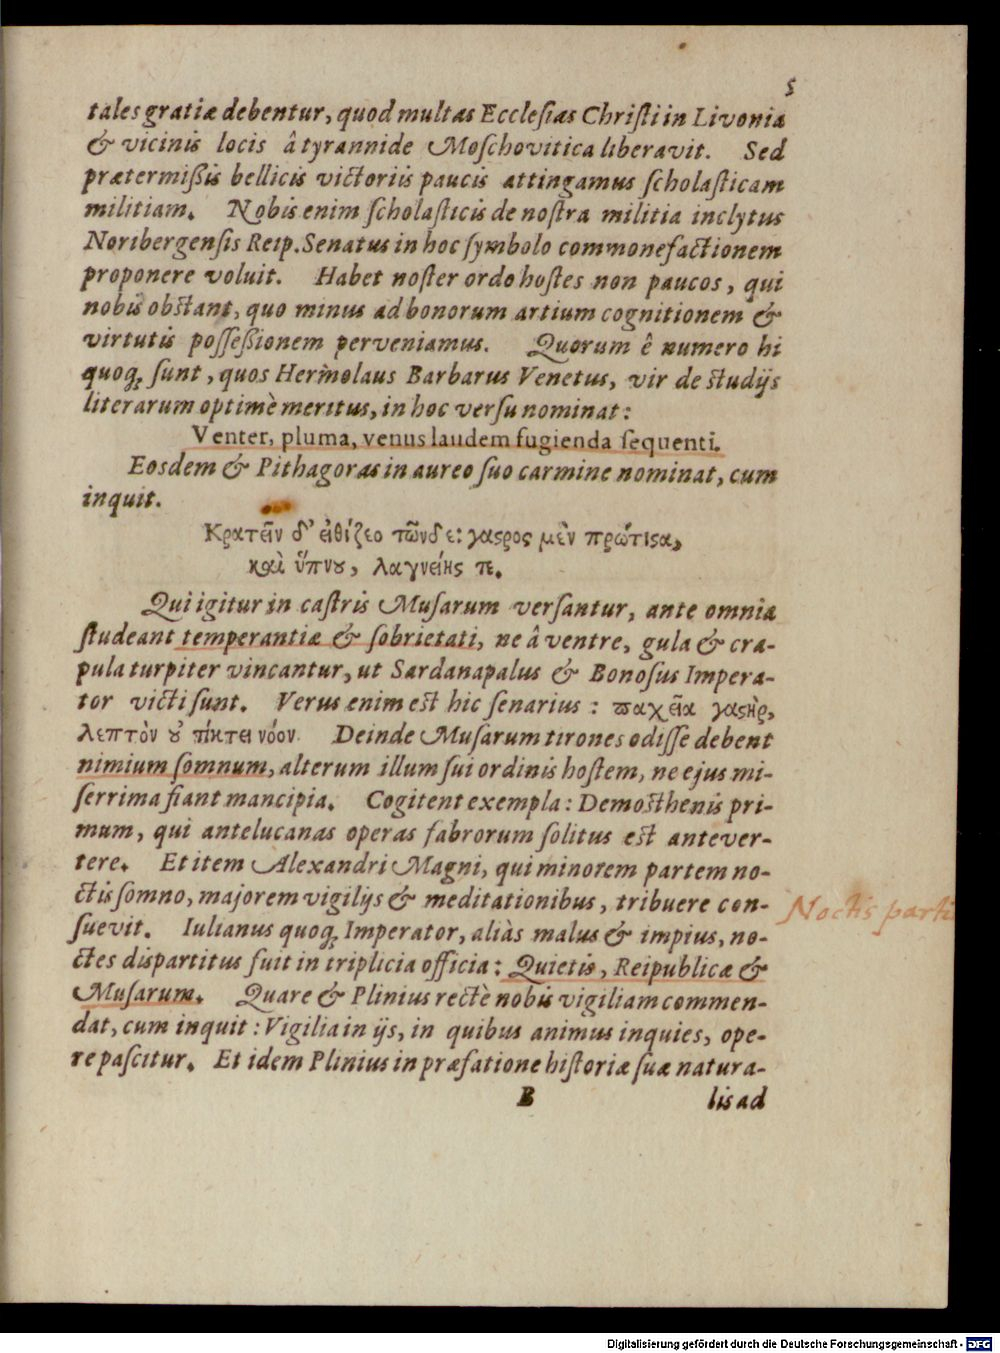 5
tales gratiæ debentur, quod multas Ecclesias Christi in Livonia
& vicinis locis â tyrannide Moschovitica liberavit. Sed
prætermißis bellicis victoriis paucis attingamus scholasticam
militiam. Nobis enim scholasticis de nostra militia inclytus
Noribergensis Reip. Senatus in hoc symbolo commonefactionem
proponere voluit. Habet noster ordo hostes non paucos, qui
nobis obstant, quo minus ad bonorum artium cognitionem &
virtutis possessionem perveniamus. Quorum ê numero hi
quoq; sunt, quos Hermolaus Barbarus Venetus, vir de studijs
literarum optimè meritus, in hoc versu nominat:
Venter, pluma, venus laudem fugienda sequenti.
Eosdem & Pithagoras in aureo suo carmine nominat, cum
inquit.
Κρατεῖν δ' εἰθίζεο τῶνδε: γαςρος μὲν πρώτιςα,
καὶ ὕπνου, λαγνείης τε.
Qui igitur in castris Musarum versantur, ante omnia
studeant temperantiæ & sobrietati, ne â ventre, gula & cra-
pula turpiter vincantur, ut Sardanapalus & Bonosus Impera-
tor victi sunt. Verus enim est hic senarius: παχεῖα γαςὴρ,
λεπτὸν οὐ τίκτει νόον. Deinde Musarum tirones odisse debent
nimium somnum, alterum illum sui ordinis hostem, ne ejus mi-
serrima fiant mancipia. Cogitent exempla: Demosthenis pri-
mum, qui antelucanas operas fabrorum solitus est antever-
tere. Et item Alexandri Magni, qui minorem partem no-
ctis somno, majorem vigilijs & meditationibus, tribuere con-
suevit. Iulianus quoq; Imperator, aliàs malus & impius, no-
ctes dispartitus fuit in triplicia officia: Quietis, Reipublicæ &
Musarum. Quare & Plinius rectè nobis vigiliam commen-
dat, cum inquit: Vigilia in ijs, in quibus animus inquies, ope-
re pascitur. Et idem Plinius in præfatione historiæ suæ natura-
B lis ad
Noctis parti
Digitalisierung gefördert durch die Deutsche Forschungsgemeinschaft - DFG